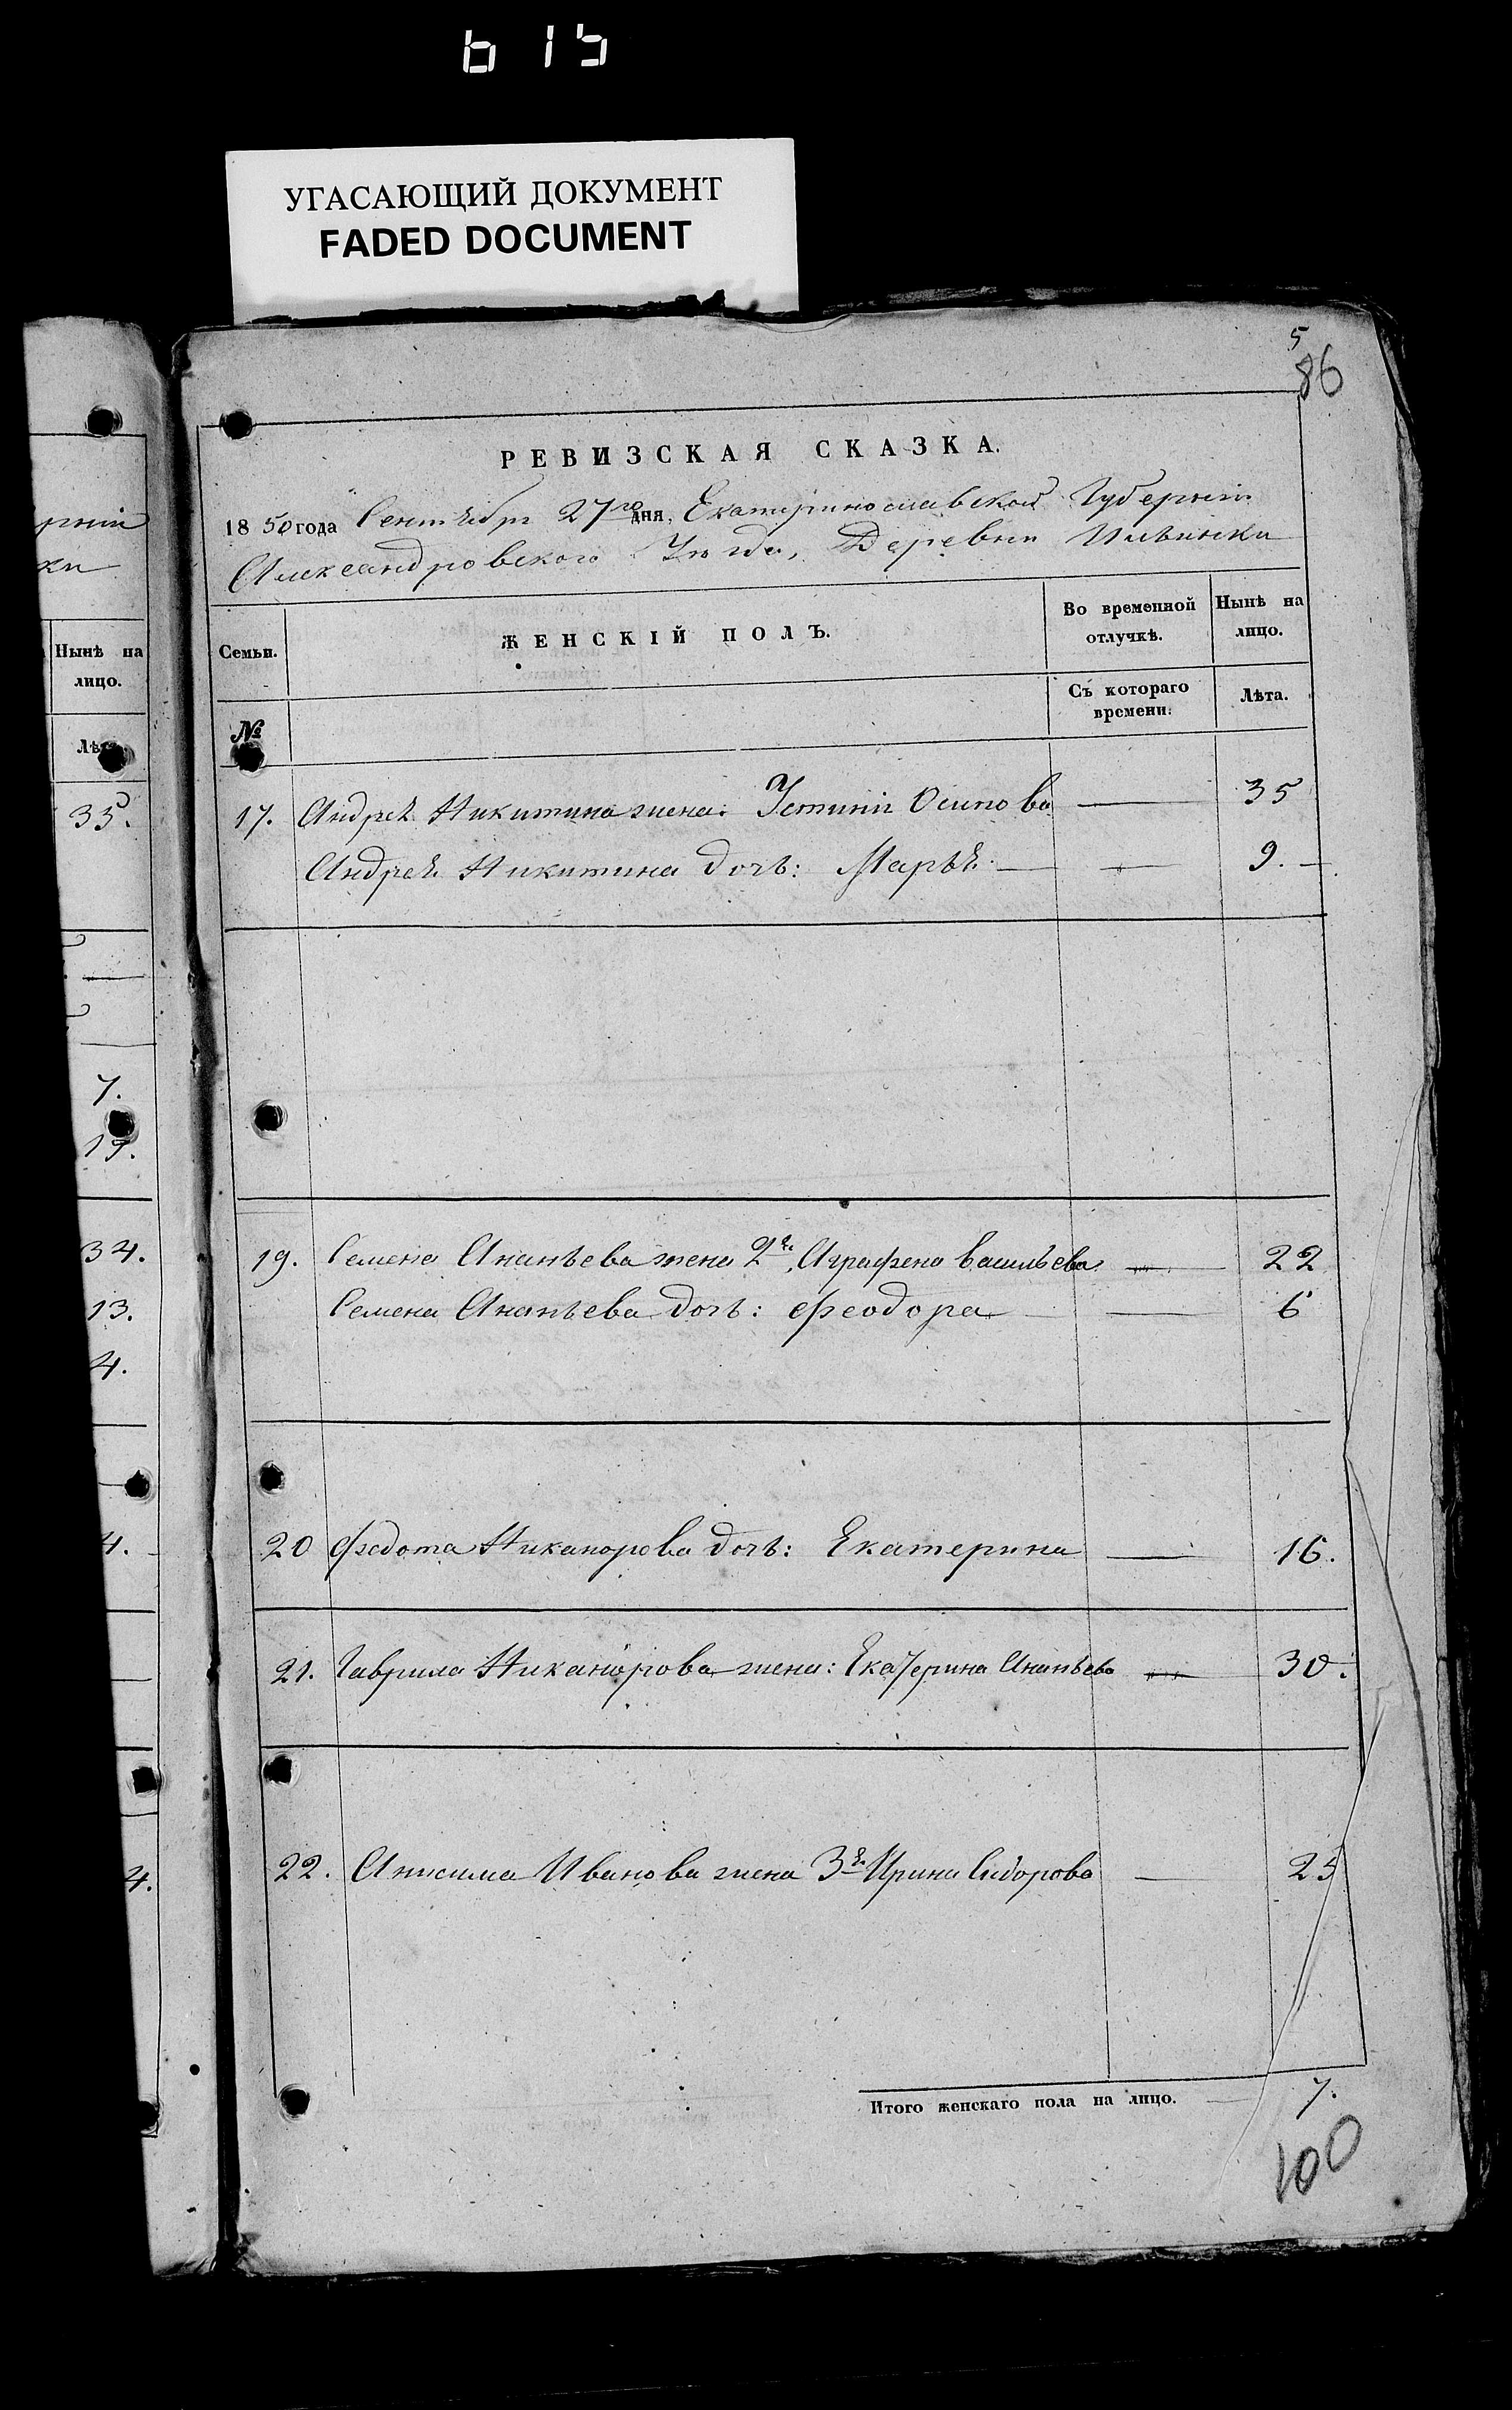 615
УГАСАЮЩИЙ ДОКУМЕНТ
FADED DOCUMENT
5
86
РЕВИЗСКАЯ СКАЗКА.
1850 года Сентября 27го дня, Екатеринославской Губерніи
Александровского Уѣзда, Деревни Ильинки
Семьи.
ЖЕНСКІЙ ПОЛЪ.
Во временной отлучкѣ.
Нынѣ на лицо.
№
Съ котораго времени.
Лѣта.
17. Андрея Никитина жена: Устинія Осипова — 35
Андрея Никитина дочь: Марья — 9.
19. Семена Ананьева жена 2я, Аграфена Васильева — 22
Семена Ананьева дочь: Феодора — 6
20 Федота Никанорова дочь: Екатерина — 16.
21. Гаврила Никанорова жена: Екатерина Ананьева — 30.
22. Анисима Иванова жена 3я Ирина Сидорова — 25
Итого женскаго пола на лицо. — 7.
100
рніи
ки
Нынѣ на
лицо.
Лѣта
35.
7.
19.
34.
13.
4.
4.
4.